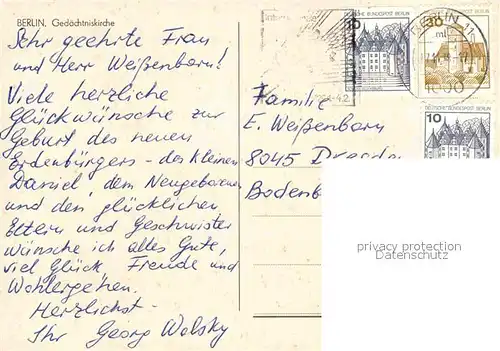 BERLIN, Gedächtniskirche
Sehr geehrte Frau
und Herr Weißenborn!
Viele herzliche
Glückwünsche zur
Geburt des neuen
Erdenbürgers - des kleinen
Daniel, dem Neugeborenen
und den glücklichen
Eltern und Geschwister
wünsche ich alles Gute,
viel Glück, Freude und
Wohlergehen.
Herzlichst -
Ihr Georg Wolsky
10
DEUTSCHE BUNDESPOST BERLIN
30
BERLIN 11
1000
Familie
E. Weißenborn
8045 Dresden
Bodenb
DEUTSCHE BUNDESPOST BERLIN
10
privacy protection
Datenschutz